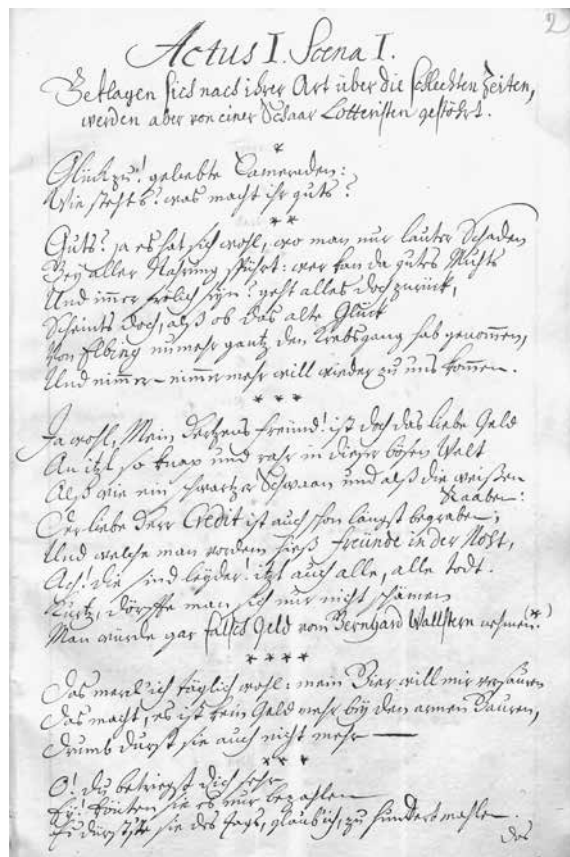 2
Actus I. Scena I.
Beklagen sich nach ihrer Art über die schlechten Zeiten,
werden aber von einer Schaar Lotteristen gestöhrt.
*
Glück zu! geliebte Cameraden:
Wie steht's? was macht ihr guts?
* *
Guts? ja es hat sich wohl, wo man nur lauter Schaden
Bey aller Nahrung spührt: wer kan da gutes Muths
Und immer frölich seyn? geht alles doch zurück,
Scheints doch, alß ob das alte Glück
Von Elbing nunmehr gantz den Krebsgang hab genommen,
Und nimmer-nimmermehr will wieder zu uns kommen.
* * *
Ja wohl, Mein Hertzens Freund! ist doch das liebe Geld
An itzt so knap und rahr in dieser bösen Welt
Alß wie ein schwartzer Schwaan und alß die weißen
Raaben:
Der liebe Herr Credit ist auch schon längst begraben;
Und welche man vordem hieß Freunde in der Noht,
Ach! die sind leyder! itzt auch alle, alle todt.
Kurtz, dörffte man sich nur nicht schämen
Man würde gar falsches Geld vom Bernhard Wallstern nehmen.(*)
* * * *
Das merck ich täglich wohl: mein Bier will mir versauren
Das macht, es ist kein Geld mehr bey den armen Bauren,
Drumb durst sie auch nicht mehr —
* * *
O! du betriegst dich sehr
Ey! könten sie es nur bezahlen
Es dürstete sie des Tags, glaub ich, zu hundert mahlen.
das